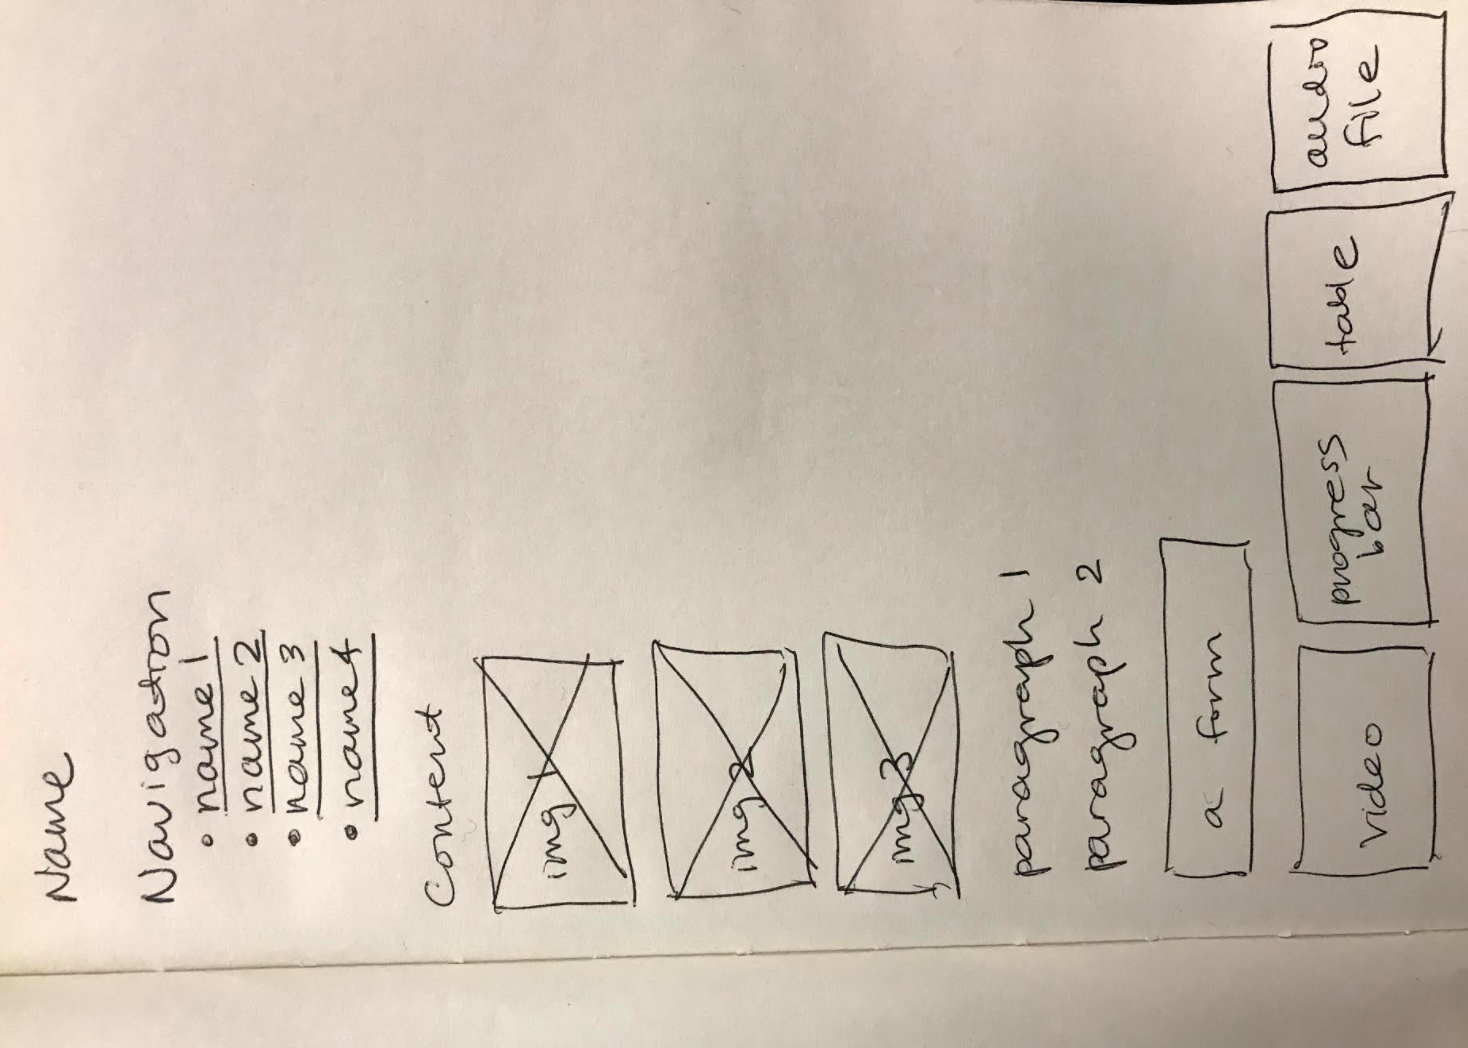 Name
Navigation
• name 1
• name 2
• name 3
• name 4
Content
img 1
img 2
img 3
paragraph 1
paragraph 2
a form
video
progress
bar
table
audio
file